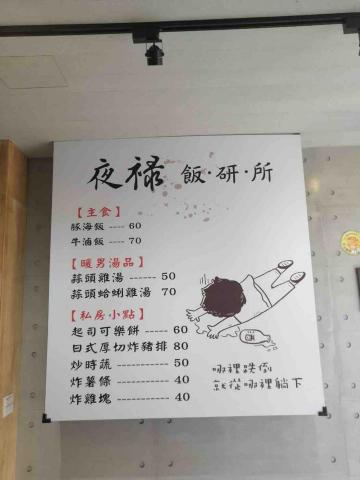 夜祿 飯·研·所
【主食】
豚海飯 ---- 60
牛滷飯 ---- 70
【暖男湯品】
蒜頭雞湯 ------ 50
蒜頭蛤蜊雞湯 70
【私房小點】
起司可樂餅 ----- 60
日式厚切炸豬排 80
炒時蔬 --------- 50
炸薯條 --------- 40
炸雞塊 --------- 40
哪裡跌倒
就從哪裡躺下